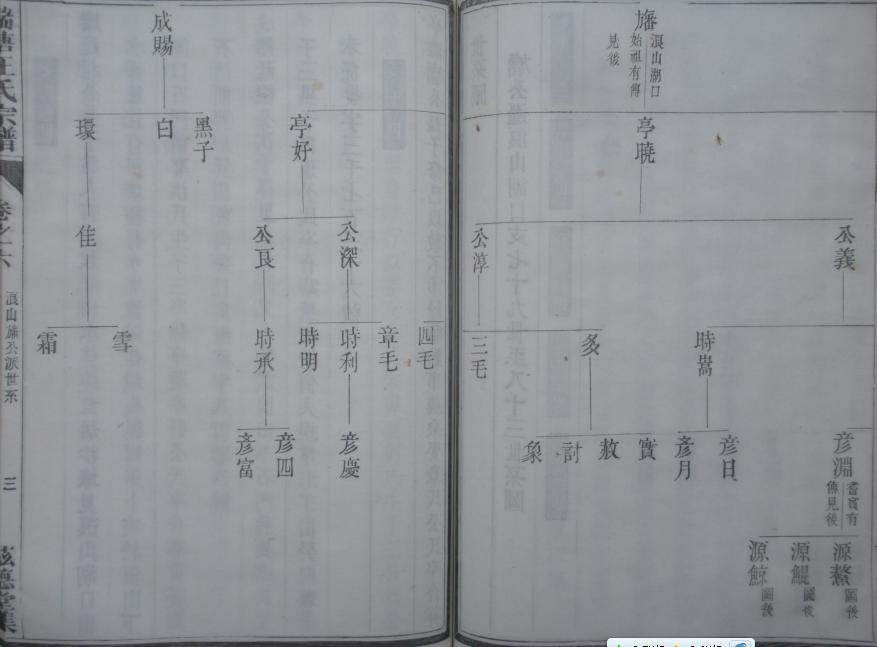 旛
浪山湖口
始祖有傳
見後
亭曉
公義
公淳
時嵩
多
三毛
彥淵
耆賓有
傳見後
彥日
彥月
實
敕
討
象
源鰲
圖後
源鯤
圖後
源鯨
圖後
亭好
公深
公良
四毛
章毛
時利
時明
時承
彥慶
彥四
彥富
成賜
黑子
白
瓊
佳
雪
霜
端塘汪氏宗譜
卷之六
浪山旛公派世系
三
慈德堂集